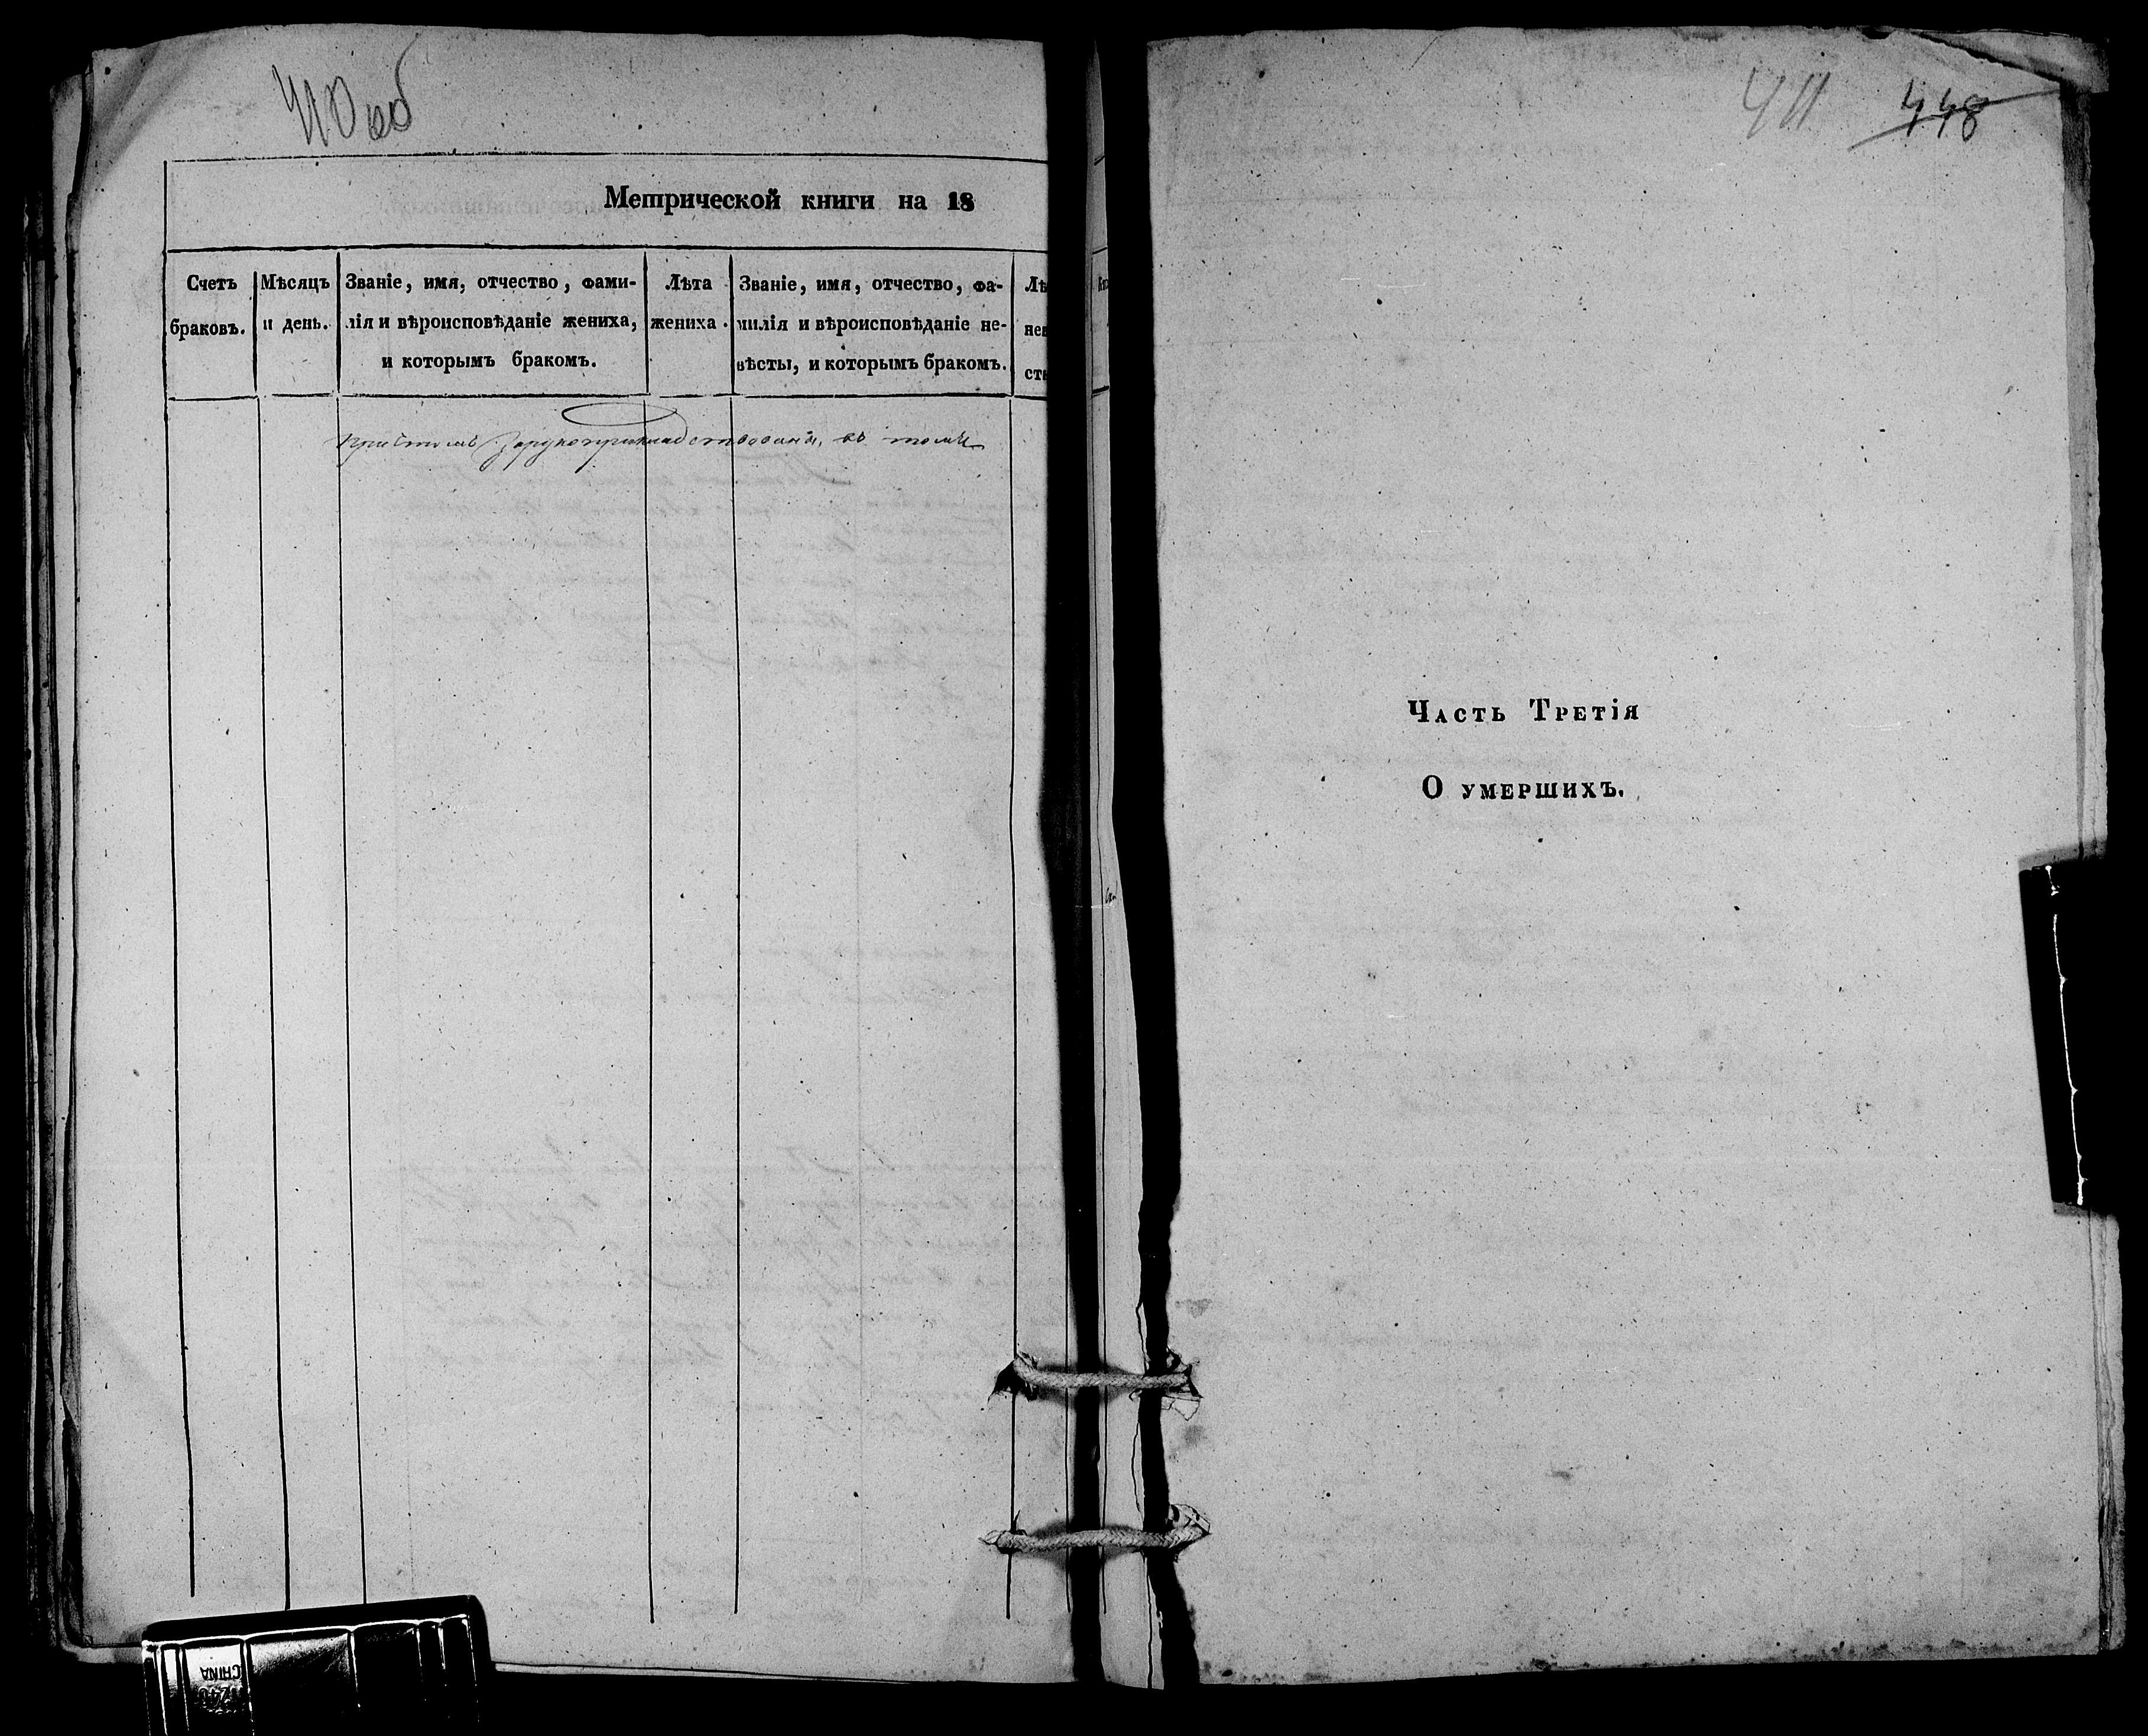 410об
Метрической книги на 18
Счетъ
браковъ.
Мѣсяцъ
и день.
Званіе, имя, отчество, фами-
лія и вѣроисповѣданіе жениха,
и которымъ бракомъ.
Лѣта
жениха.
Званіе, имя, отчество, фа-
милія и вѣроисповѣданіе не-
вѣсты, и которымъ бракомъ.
Лѣ
нев
сты
въ томъ
411 448
Часть Третія
О умершихъ.
CHINA